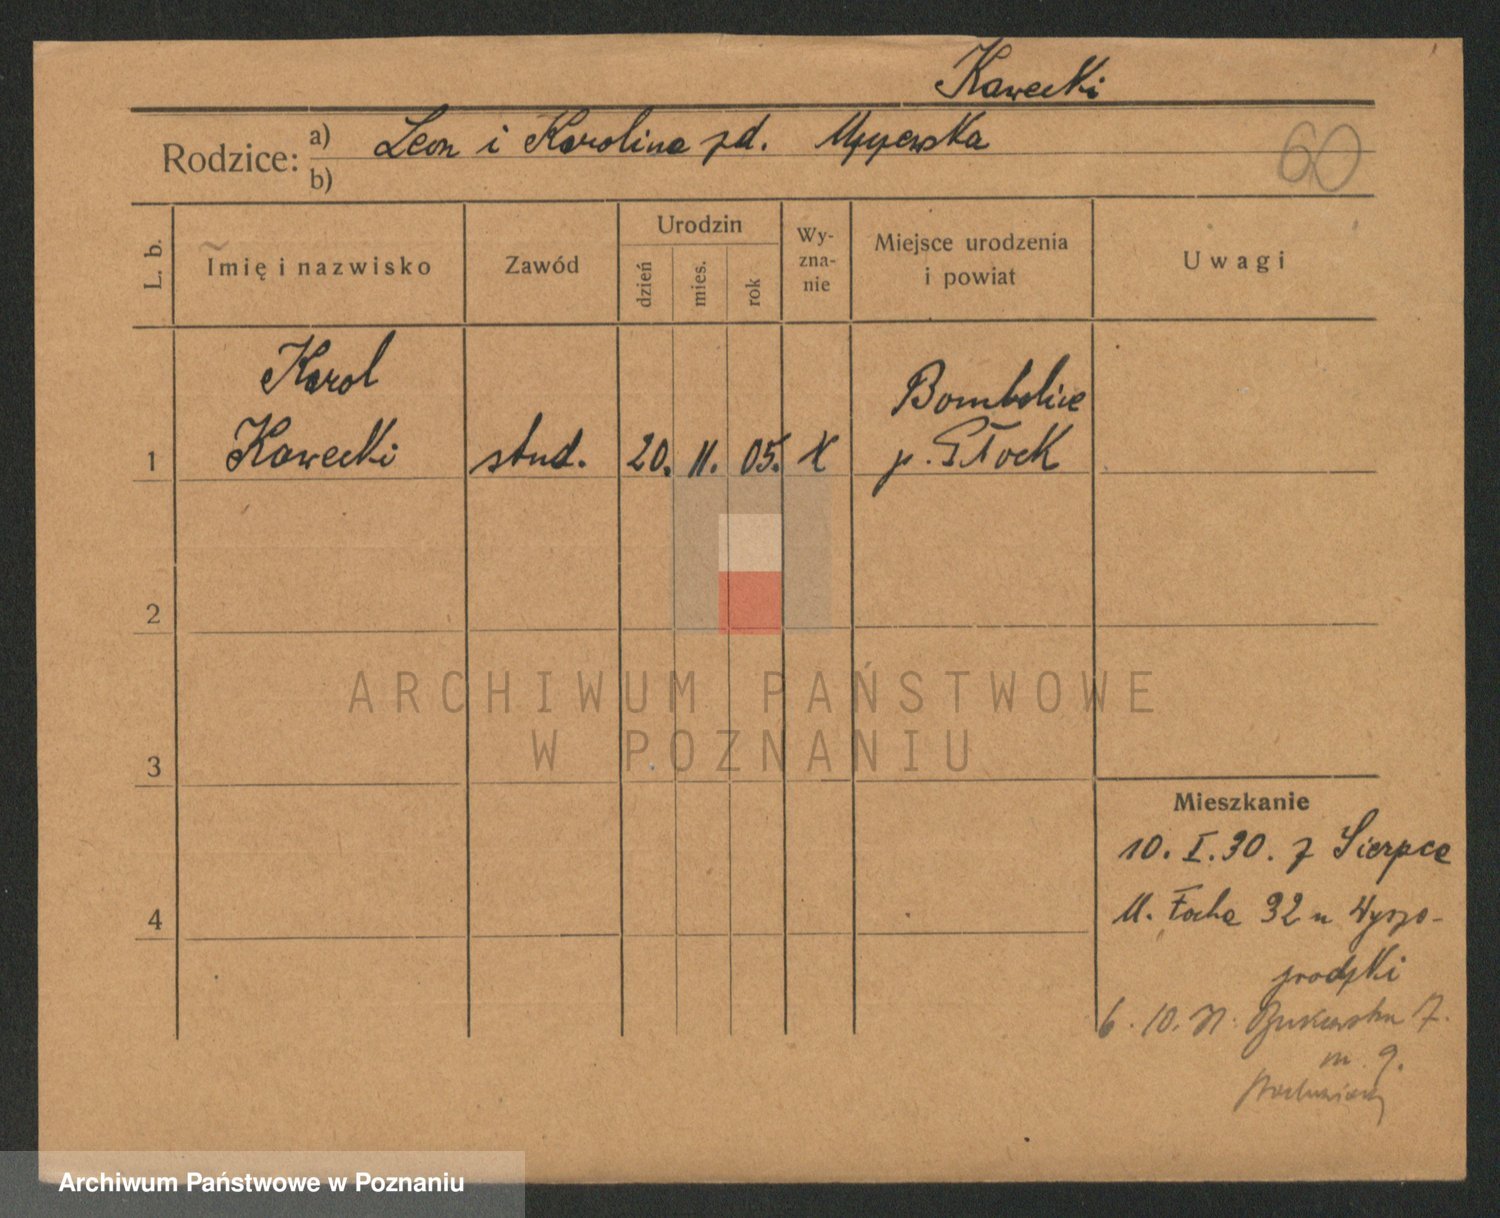 Kawecki
Rodzice: a) Leon i Karolina zd.
b)
60
L. b.
Imię i nazwisko
Zawód
Urodzin
dzień
mies.
rok
Wy-
zna-
nie
Miejsce urodzenia
i powiat
Uwagi
Karol
Kawecki
1
stud.
20. 11. 05.
p. Płock
2
3
4
ARCHIWUM PAŃSTWOWE
W POZNANIU
Mieszkanie
10. I. 30. z Sierpce
M. Focha 32 u Wyszo-
grodzki
6. 10. Bukowska 7.
m. 9.
Archiwum Państwowe w Poznaniu